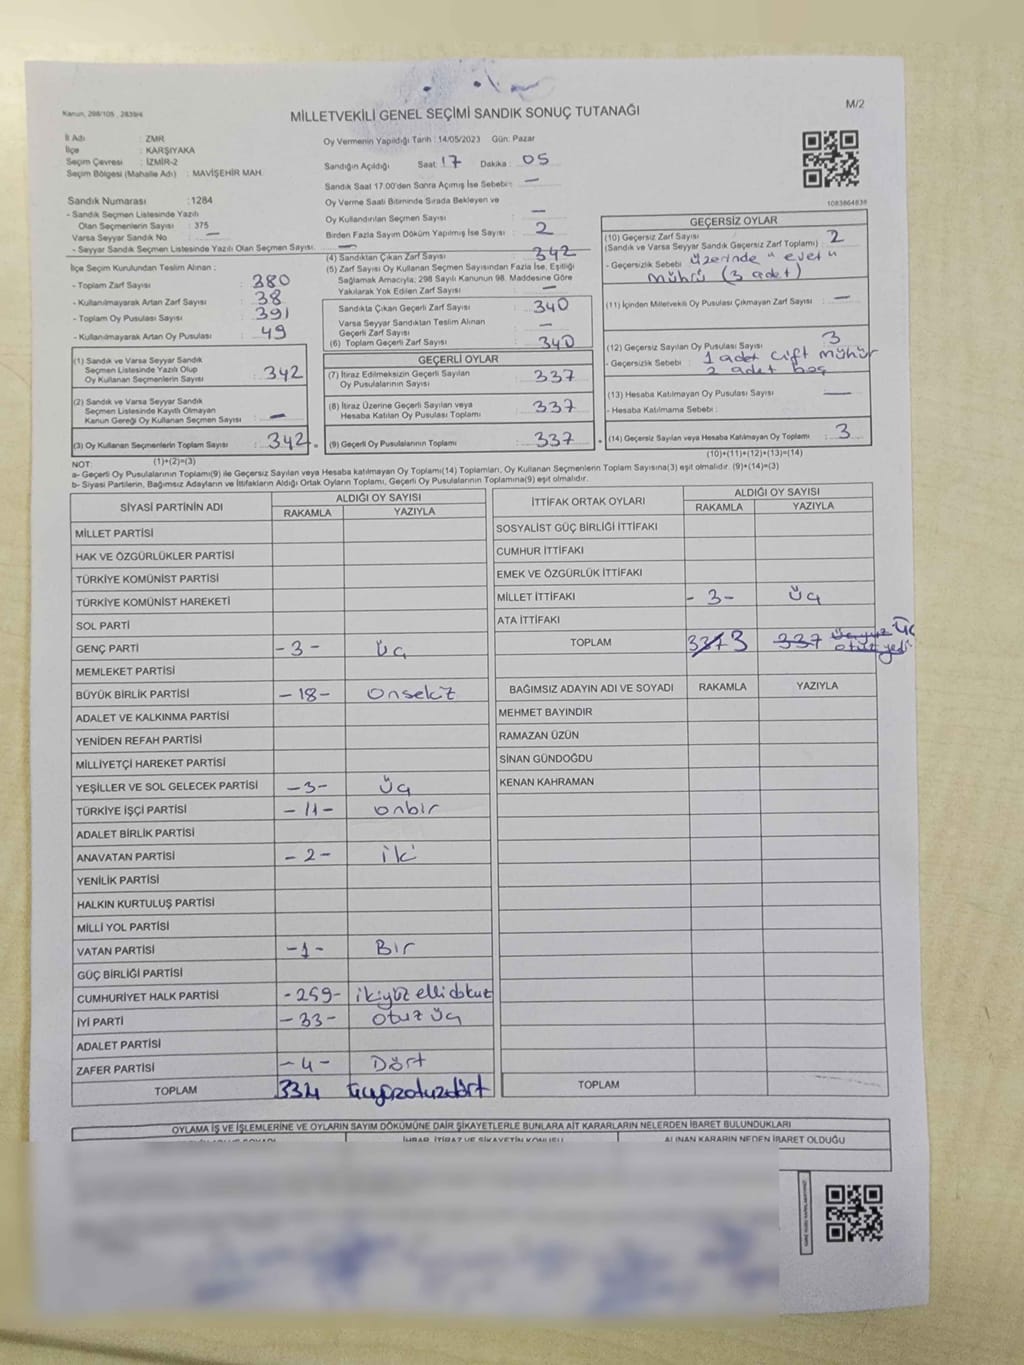 Kanun, 298/105 , 2839/4
M/2
MİLLETVEKİLİ GENEL SEÇİMİ SANDIK SONUÇ TUTANAĞI
İl Adı : ZMR
İlçe : KARŞIYAKA
Seçim Çevresi : İZMİR-2
Seçim Bölgesi (Mahalle Adı) : MAVİŞEHİR MAH.
Oy Vermenin Yapıldığı Tarih : 14/05/2023 Gün: Pazar
Sandığın Açıldığı Saat: 17 Dakika : 05
Sandık Saat 17.00'den Sonra Açımış İse Sebebi : —
Oy Verme Saati Bitiminde Sırada Bekleyen ve
Oy Kullandırılan Seçmen Sayısı : —
Birden Fazla Sayım Döküm Yapılmış İse Sayısı : 2
1083864838
Sandık Numarası : 1284
- Sandık Seçmen Listesinde Yazılı
Olan Seçmenlerin Sayısı : 375
Varsa Seyyar Sandık No : —
- Seyyar Sandık Seçmen Listesinde Yazılı Olan Seçmen Sayısı: —
İlçe Seçim Kurulundan Teslim Alınan :
- Toplam Zarf Sayısı : 380
- Kullanılmayarak Artan Zarf Sayısı : 38
- Toplam Oy Pusulası Sayısı : 391
- Kullanılmayarak Artan Oy Pusulası : 49
(1) Sandık ve Varsa Seyyar Sandık
Seçmen Listesinde Yazılı Olup
Oy Kullanan Seçmenlerin Sayısı : 342
(2) Sandık ve Varsa Seyyar Sandık
Seçmen Listesinde Kayıtlı Olmayan
Kanun Gereği Oy Kullanan Seçmen Sayısı : —
(3) Oy Kullanan Seçmenlerin Toplam Sayısı : 342
(1)+(2)=(3)
(4) Sandıktan Çıkan Zarf Sayısı : 342
(5) Zarf Sayısı Oy Kullanan Seçmen Sayısından Fazla İse, Eşitliği
Sağlamak Amacıyla; 298 Sayılı Kanunun 98. Maddesine Göre
Yakılarak Yok Edilen Zarf Sayısı : —
Sandıkta Çıkan Geçerli Zarf Sayısı : 340
Varsa Seyyar Sandıktan Teslim Alınan
Geçerli Zarf Sayısı : —
(6) Toplam Geçerli Zarf Sayısı : 340
GEÇERLİ OYLAR
(7) İtiraz Edilmeksizin Geçerli Sayılan
Oy Pusulalarının Sayısı : 337
(8) İtiraz Üzerine Geçerli Sayılan veya
Hesaba Katılan Oy Pusulası Toplamı : 337
(9) Geçerli Oy Pusulalarının Toplamı : 337
GEÇERSİZ OYLAR
(10) Geçersiz Zarf Sayısı : 2
(Sandık ve Varsa Seyyar Sandık Geçersiz Zarf Toplamı)
- Geçersizlik Sebebi : üzerinde "evet"
mührü (3 adet)
(11) İçinden Milletvekili Oy Pusulası Çıkmayan Zarf Sayısı : —
(12) Geçersiz Sayılan Oy Pusulası Sayısı : 3
- Geçersizlik Sebebi : 1 adet çift mühür
2 adet boş
(13) Hesaba Katılmayan Oy Pusulası Sayısı : —
- Hesaba Katılmama Sebebi :
(14) Geçersiz Sayılan veya Hesaba Katılmayan Oy Toplamı : 3
(10)+(11)+(12)+(13)=(14)
NOT:
a- Geçerli Oy Pusulalarının Toplamı(9) ile Geçersiz Sayılan veya Hesaba katılmayan Oy Toplamı(14) Toplamları, Oy Kullanan Seçmenlerin Toplam Sayısına(3) eşit olmalıdır. (9)+(14)=(3)
b- Siyasi Partilerin, Bağımsız Adayların ve İttifakların Aldığı Ortak Oyların Toplamı, Geçerli Oy Pusulalarının Toplamına(9) eşit olmalıdır.
SİYASİ PARTİNİN ADI ALDIĞI OY SAYISI
RAKAMLA YAZIYLA
MİLLET PARTİSİ
HAK VE ÖZGÜRLÜKLER PARTİSİ
TÜRKİYE KOMÜNİST PARTİSİ
TÜRKİYE KOMÜNİST HAREKETİ
SOL PARTİ
GENÇ PARTİ -3- Üç
MEMLEKET PARTİSİ
BÜYÜK BİRLİK PARTİSİ -18- Onsekiz
ADALET VE KALKINMA PARTİSİ
YENİDEN REFAH PARTİSİ
MİLLİYETÇİ HAREKET PARTİSİ
YEŞİLLER VE SOL GELECEK PARTİSİ -3- Üç
TÜRKİYE İŞÇİ PARTİSİ -11- onbir
ADALET BİRLİK PARTİSİ
ANAVATAN PARTİSİ -2- iki
YENİLİK PARTİSİ
HALKIN KURTULUŞ PARTİSİ
MİLLİ YOL PARTİSİ
VATAN PARTİSİ -1- Bir
GÜÇ BİRLİĞİ PARTİSİ
CUMHURİYET HALK PARTİSİ -259- ikiyüz ellidokuz
İYİ PARTİ -33- otuz üç
ADALET PARTİSİ
ZAFER PARTİSİ -4- Dört
TOPLAM 334 üçyüzotuzdört
İTTİFAK ORTAK OYLARI ALDIĞI OY SAYISI
RAKAMLA YAZIYLA
SOSYALİST GÜÇ BİRLİĞİ İTTİFAKI
CUMHUR İTTİFAKI
EMEK VE ÖZGÜRLÜK İTTİFAKI
MİLLET İTTİFAKI -3- Üç
ATA İTTİFAKI
TOPLAM 337 3 337 üçyüz otuz yedi Üç
BAĞIMSIZ ADAYIN ADI VE SOYADI RAKAMLA YAZIYLA
MEHMET BAYINDIR
RAMAZAN ÜZÜN
SİNAN GÜNDOĞDU
KENAN KAHRAMAN
TOPLAM
OYLAMA İŞ VE İŞLEMLERİNE VE OYLARIN SAYIM DÖKÜMÜNE DAİR ŞİKAYETLERLE BUNLARA AİT KARARLARIN NELERDEN İBARET BULUNDUKLARI
İHBAR, İTİRAZ VE ŞİKAYETİN KONUSU ALINAN KARARIN NEDEN İBARET OLDUĞU